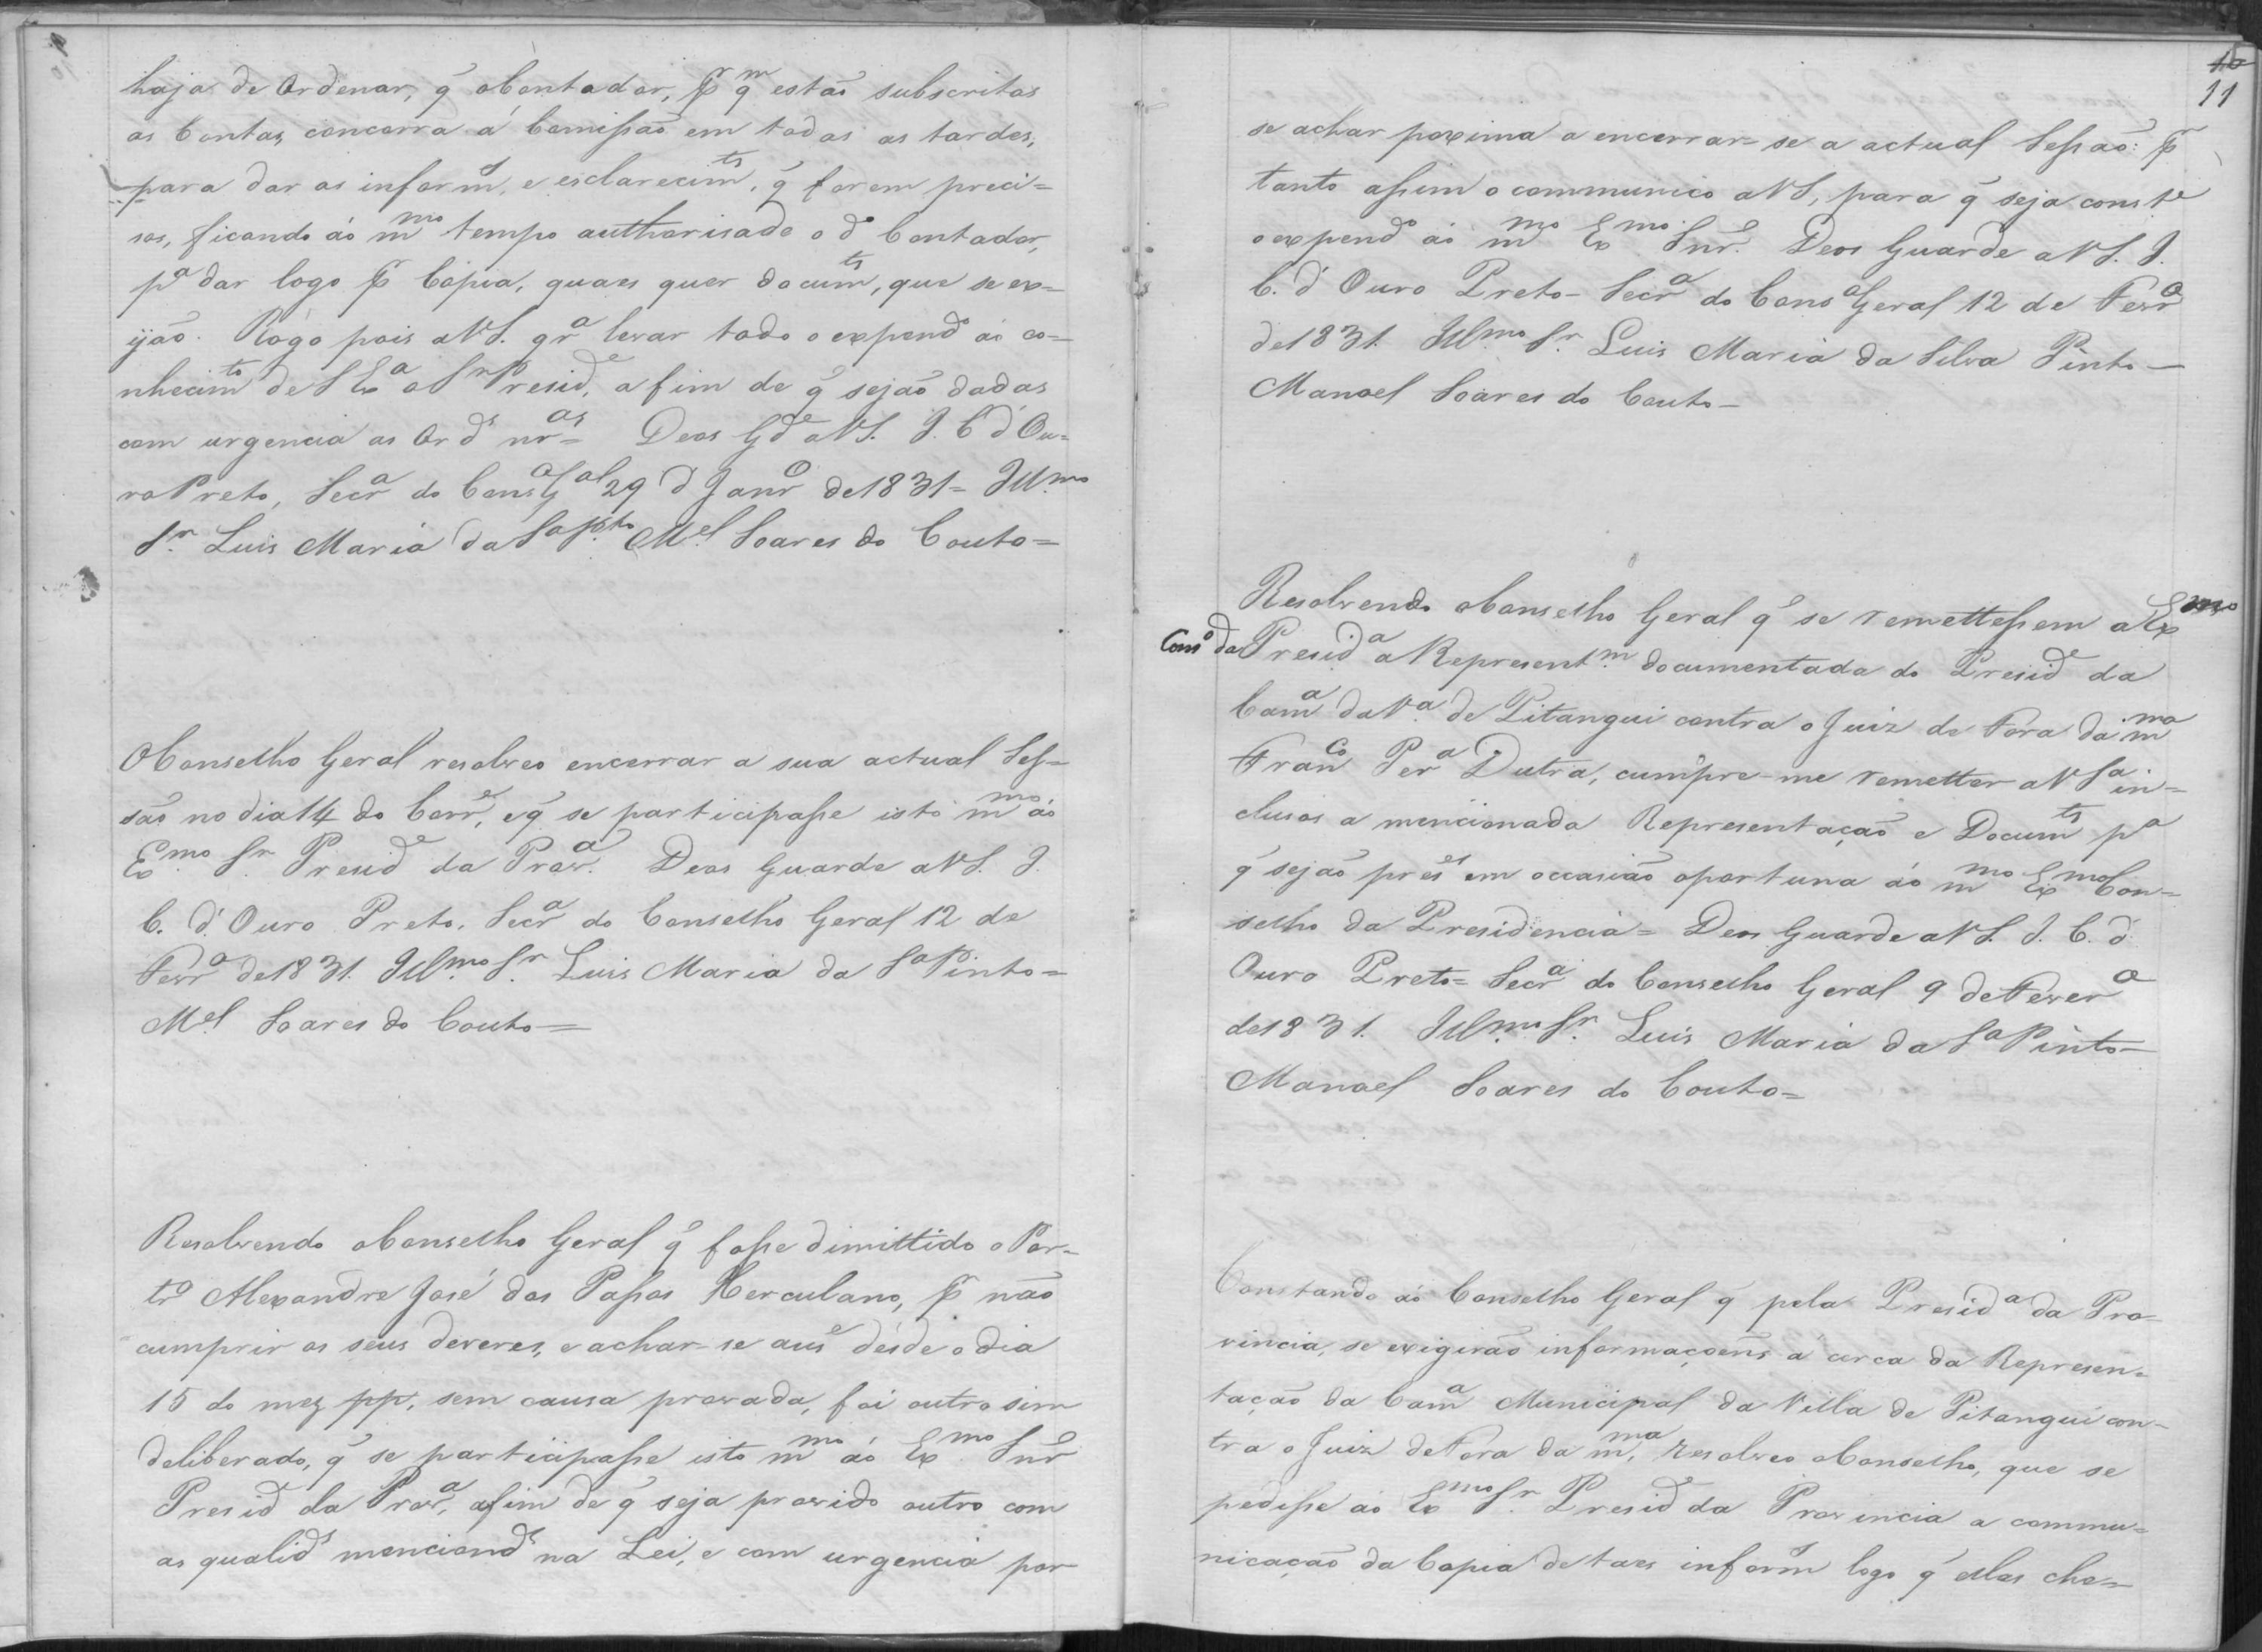 haja de Ordenar, q̃ o Contador, pr qm estão subscritas
as Contas, concorra á Comissão em todas as tardes,
para dar as informs, e esclarecimts, q̃ forem preci=
sos, ficando áo mmo tempo authorisado o do Contador,
pa dar logo pr Cópia, quaes quer documts, que se ex=
ijão. Rógo pois a VS. qra levar todo o expendo áo co=
nhecimto de S Exa o Sr Preside, a fim de q̃ sejão dadas
com urgencia as Ords nras= Deos Gde a VS. I. C d'Ou=
ro Preto, Secra do Conso Gal 29 d Janro de 1831= Illmo
Sr. Luis Maria da Sa Pto Mel Soares do Couto=
O Conselho Geral resolveo encerrar a sua actual Ses=
são no dia 14 do Corre, e q̃ se participasse isto mmo áo
Exmo Sr. Preside da Prova. Deos Guarde a VS. I.
C. d' Ouro Preto. Secra do Conselho Geral 12 de
Fevro de 1831. Illmo Sr. Luis Maria da Sa Pinto=
Mel Soares do Couto=
Resolvendo o Conselho Geral q̃ fosse dimittido o Por=
tro Alexandre José dos Passos Herculano, pr não
cumprir os seus deveres, e achar-seause désde o dia
15 do mez pp. sem causa provada, foi outro sim
deliberado, q̃ se participasse isto mmo áo Exmo Snr
Preside da Prova, afim de q̃ seja provido outro com
as qualids mencionds na Lei, e com urgencia por
10
11
se achar proxima a encerrar-se a actual Sessão: pr
tanto assim o communico a VS, para q̃ seja conste
o expendo áo mmo Exmo Snr. Deos Guarde a VS. I.
C. d' Ouro Preto- Secra do Conso Geral 12 de Fevro
de 1831. Illmo Sr. Luis Maria da Silva Pinto-
Manoel Soares do Couto-
Resolvendo o Conselho Geral q̃ se remettessem a Exmo
Conso da Presida a Representm documentada do Preside da
Cama da Va. de Pitangui contra o Juiz de Fora da mma
Franco Pera Dutra, cumpre-me remetter a VSa in=
clusos a mencionada Representação e Documts pa
q̃ sejão pres em occasião oportuna áo mmo Exmo Con=
selho da Presidencia= Deos Guarde a VS. I. C. d'
Ouro Preto= Secra do Conselho Geral 9 de Fevero
de 1831. Illmo Sr. Luis Maria da Sa Pinto-
Manoel Soares do Couto=
Constando áo Conselho Geral q̃ pela Presida da Pro=
vincia, se exigirão informaçoens á cerca da Represen=
tação da Cama Municipal da Villa de Pitangui con=
tra o Juiz de Fora da mma, resolveo o Conselho, que se
pedisse áo Exmo Sr. Preside da Provincia a commu=
nicação da Copia de taes informs logo q̃ ellas che=